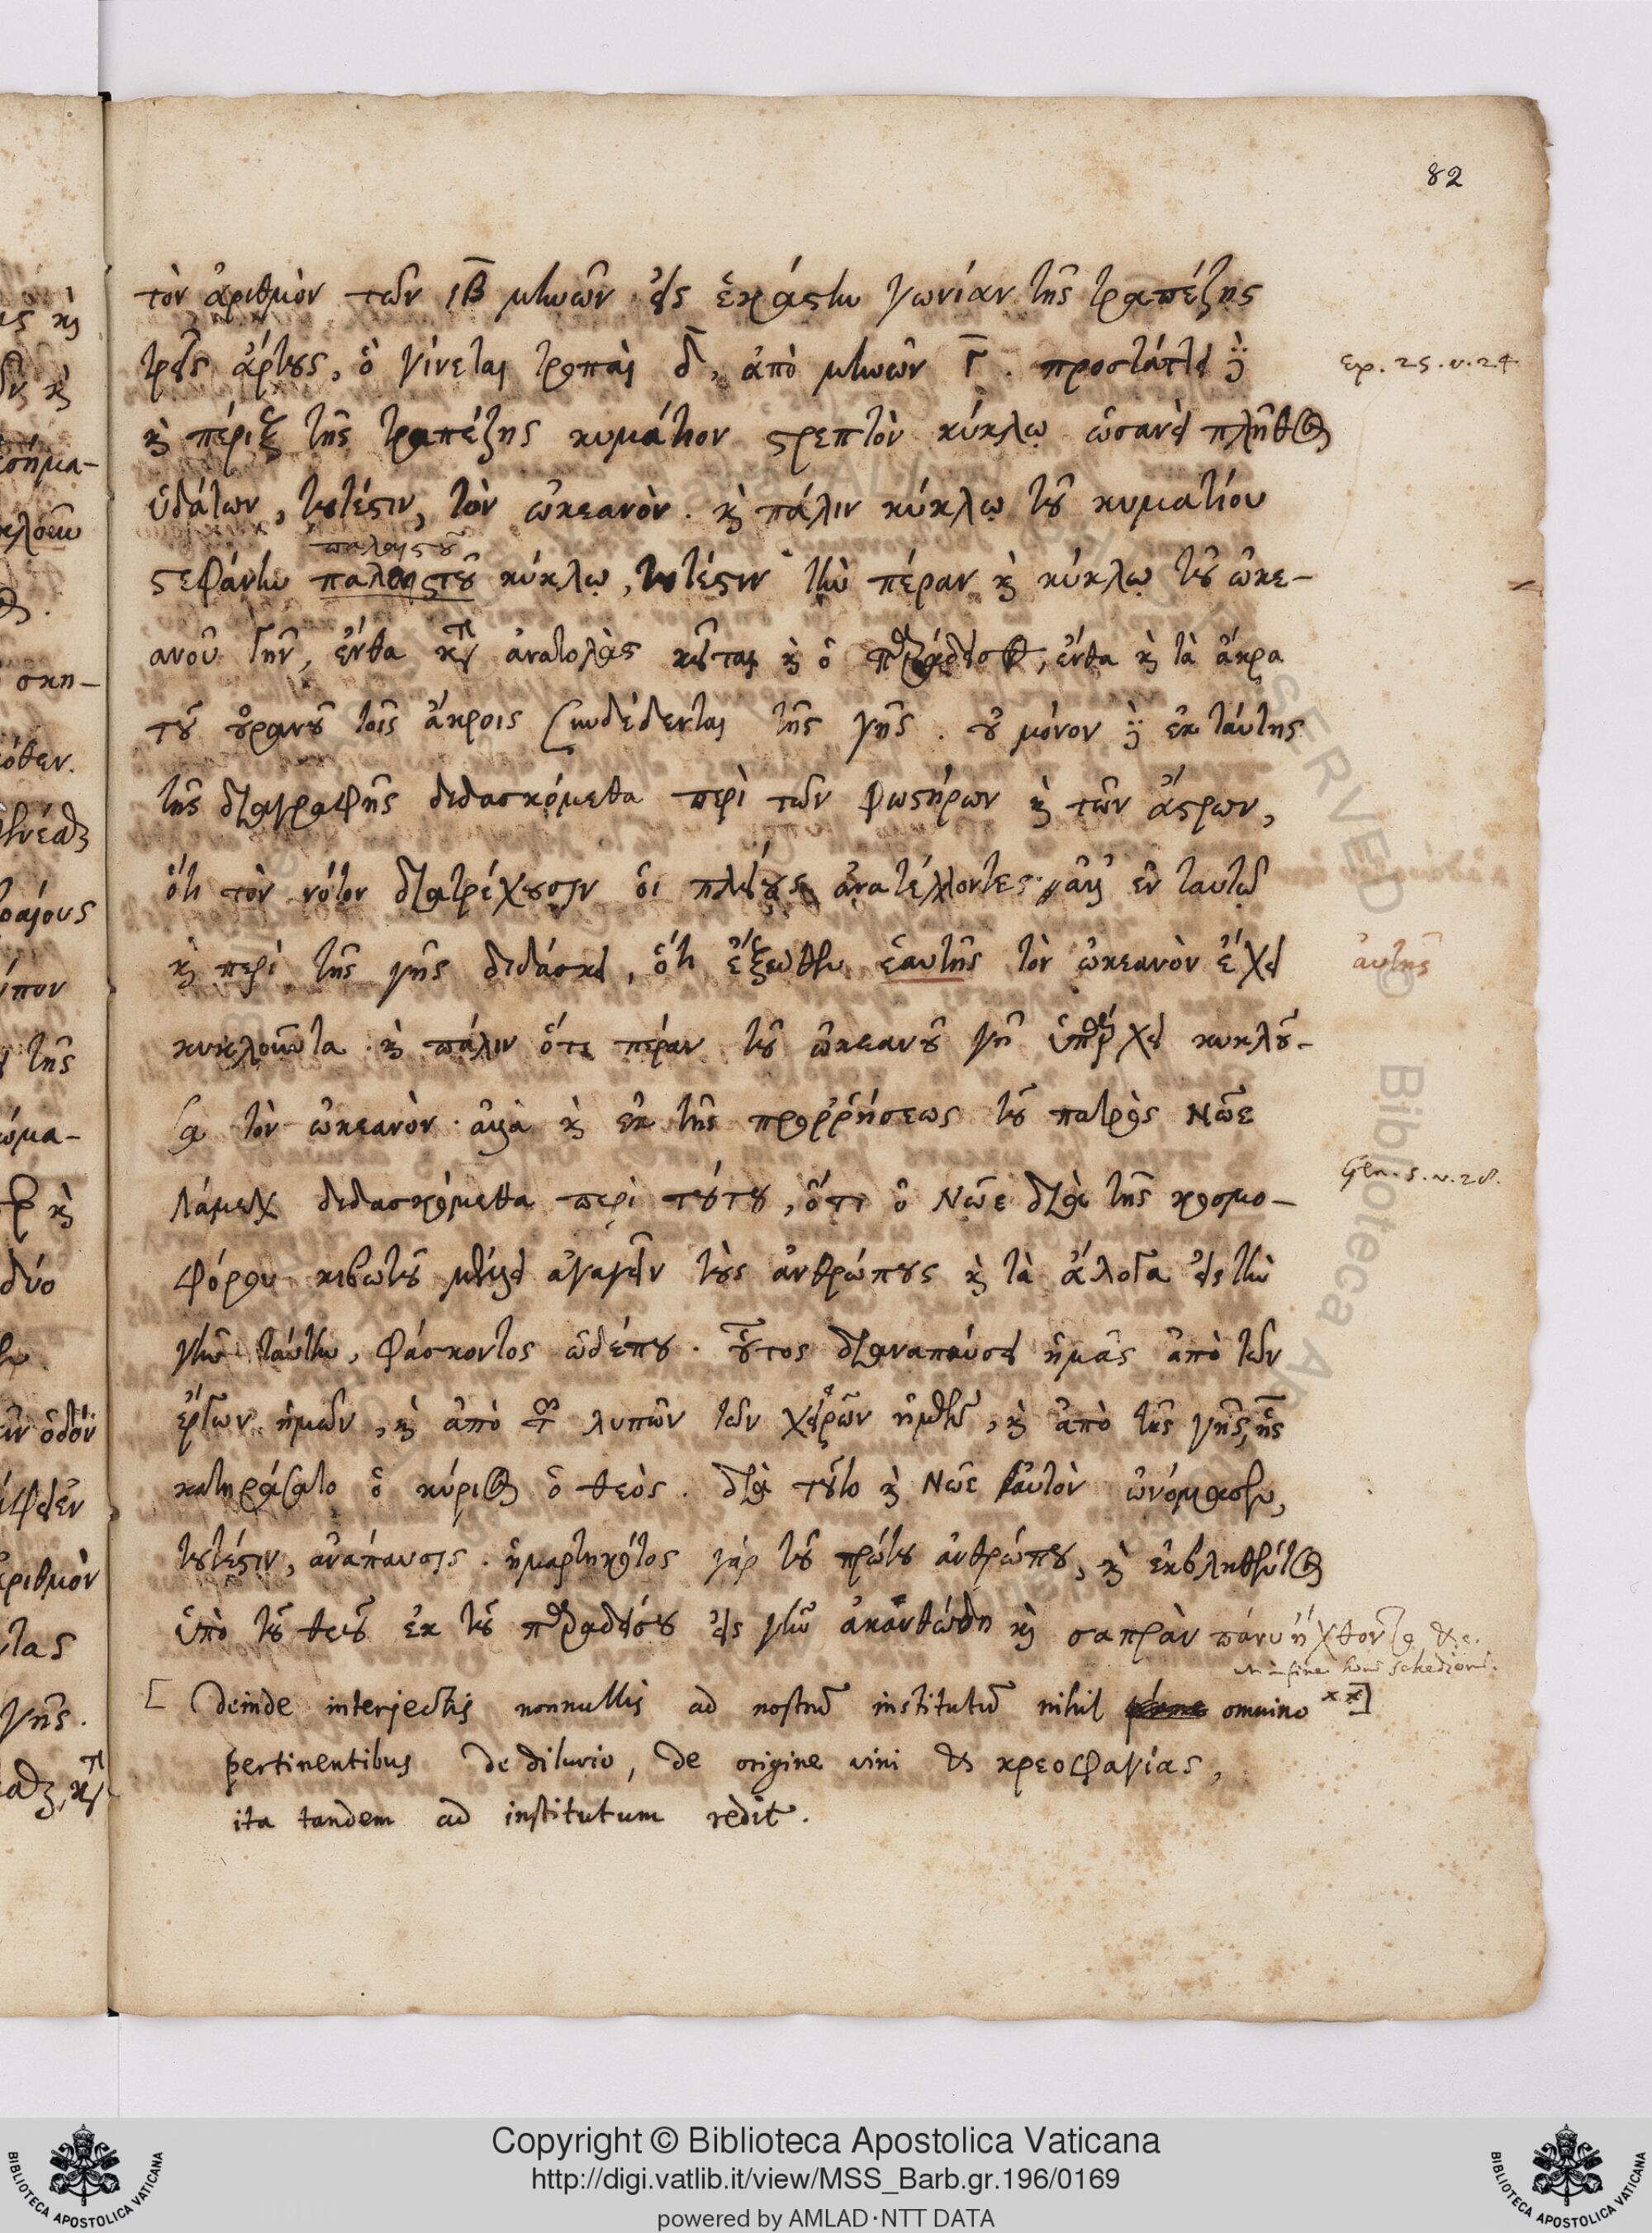 82
τὸν ἀριθμὸν τῶν ιβ̄ μηνῶν. εἰς ἑκάστην γωνίαν τῆς τραπέζης
τρεῖς ἄρτους, ὃ γίνεται τροπαὶ δ̄, ἀπὸ μηνῶν γ̄. προστάττει δὲ
ex. 25. v. 24
καὶ πέριξ τῆς τραπέζης κυμάτιον στρεπτὸν κύκλῳ ὡσανεὶ πλῆθος
ὑδάτων, τουτέστιν, τὸν ὠκεανὸν. καὶ πάλιν κύκλῳ τοῦ κυματίου
παλαιστοῦ
στεφάνην παλαιστοῦ κύκλῳ, τουτέστιν τὴν πέραν καὶ κύκλῳ τοῦ ὠκε-
ανοῦ γῆν, ἔνθα κατὰ ἀνατολὰς κεῖται καὶ ὁ παράδεισος, ἔνθα καὶ τὰ ἄκρα
τοῦ οὐρανοῦ τοῖς ἄκροις συνδέδενται τῆς γῆς. οὐ μόνον δὲ ἐκ ταύτης
τῆς διαγραφῆς διδασκόμεθα περὶ τῶν φωστήρων καὶ τῶν ἄστρων,
ὅτι τὸν νότον διατρέχουσιν οἱ πλείους ἀνατέλλοντες. ἀλλ' ἐν ταυτῷ
καὶ περὶ τῆς γῆς διδάσκει, ὅτι ἔξωθεν ἑαυτῆς τὸν ὠκεανὸν ἔχει
αὐτῆς
κυκλοῦντα. καὶ πάλιν ὅτι πέραν τοῦ ὠκεανοῦ γῆ ὑπάρχει κυκλοῦ-
σα τὸν ὠκεανὸν. ἀλλὰ καὶ ἐκ τῆς προρρήσεως τοῦ πατρὸς Νῶε
Λάμεχ διδασκόμεθα περὶ τούτου, ὅτι ὁ Νῶε διὰ τῆς κοσμο-
Gen. 5. v. 28.
φόρου κιβωτοῦ μέλλει ἀγαγεῖν τοὺς ἀνθρώπους καὶ τὰ ἄλογα εἰς τὴν
γῆν ταύτην, φάσκοντος ὡδέπου. οὗτος διαναπαύσει ἡμᾶς ἀπὸ τῶν
ἔργων ἡμῶν, καὶ ἀπὸ τῶν λυπῶν τῶν χειρῶν ἡμῶν, καὶ ἀπὸ τῆς γῆς, ἧς
κατηράσατο ὁ κύριος ὁ θεὸς. διὰ τοῦτο καὶ Νῶε αὐτὸν ὠνόμασεν,
τουτέστιν, ἀνάπαυσις. ἡμαρτηκότος γὰρ τοῦ πρώτου ἀνθρώπου, καὶ ἐκβληθέντος
ὑπὸ τοῦ θεοῦ ἐκ τοῦ παραδείσου εἰς γῆν ἀκανθώδη καὶ σαπρὰν πάνυ
ut in fine huius schedion.
[ Deinde interjectis nonnullis ad nostrū institutū nihil omnino ]
pertinentibus de diluvio, de origine vini & κρεοφαγίας,
ita tandem ad institutum redit.
Copyright © Biblioteca Apostolica Vaticana
http://digi.vatlib.it/view/MSS_Barb.gr.196/0169
powered by AMLAD·NTT DATA
BIBLIOTECA APOSTOLICA VATICANA
BIBLIOTECA APOSTOLICA VATICANA